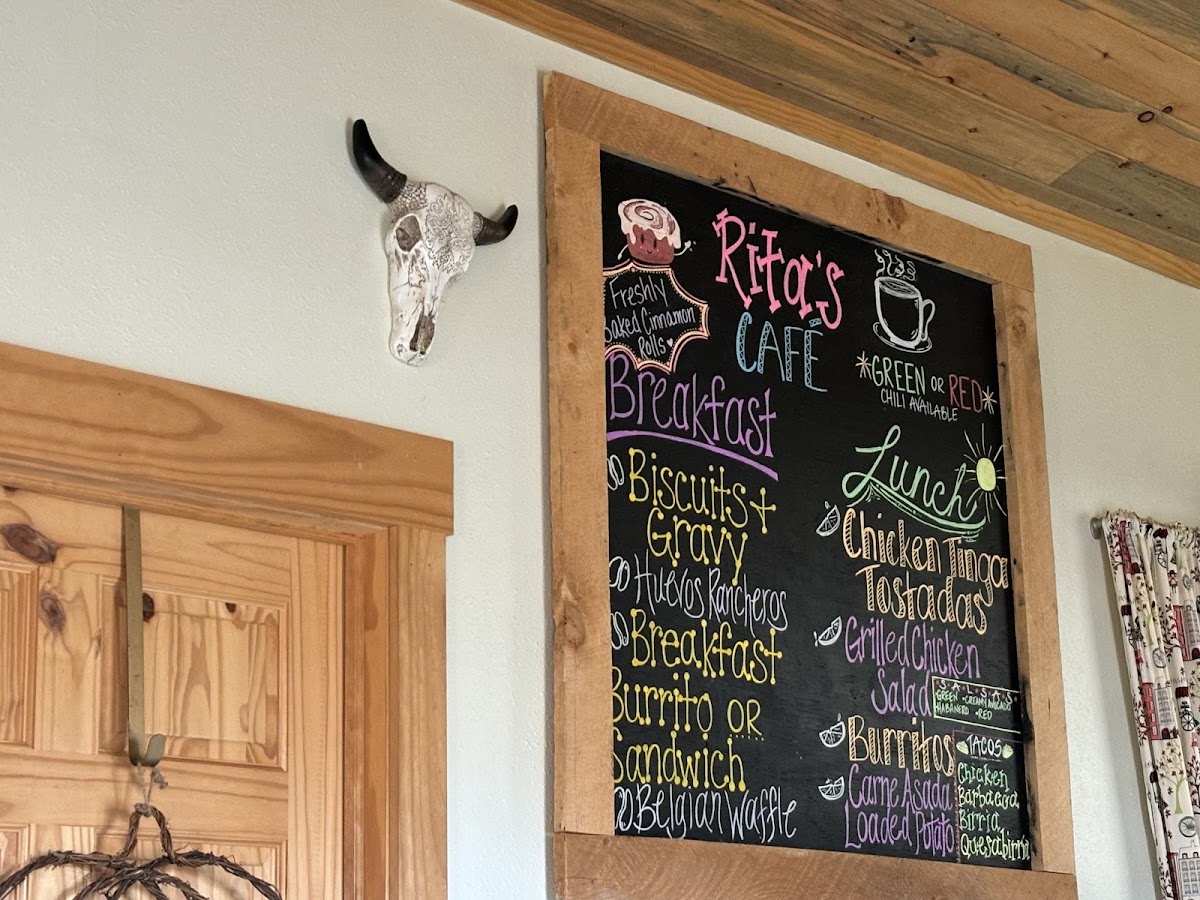 Rita's
CAFÉ
Freshly
baked Cinnamon
Rolls
*GREEN OR RED*
CHILI AVAILABLE
Breakfast
Biscuits +
Gravy
Huevos Rancheros
Breakfast
Burrito OR
Sandwich
Belgian Waffle
Lunch
Chicken Tinga
Tostadas
Grilled Chicken
Salad
SALSAS
GREEN • CREAMY AVOCADO
HABANERO • RED
Burritos
Carne Asada
Loaded Potato
TACOS
Chicken
Barbacoa
Birria
Quesabirria